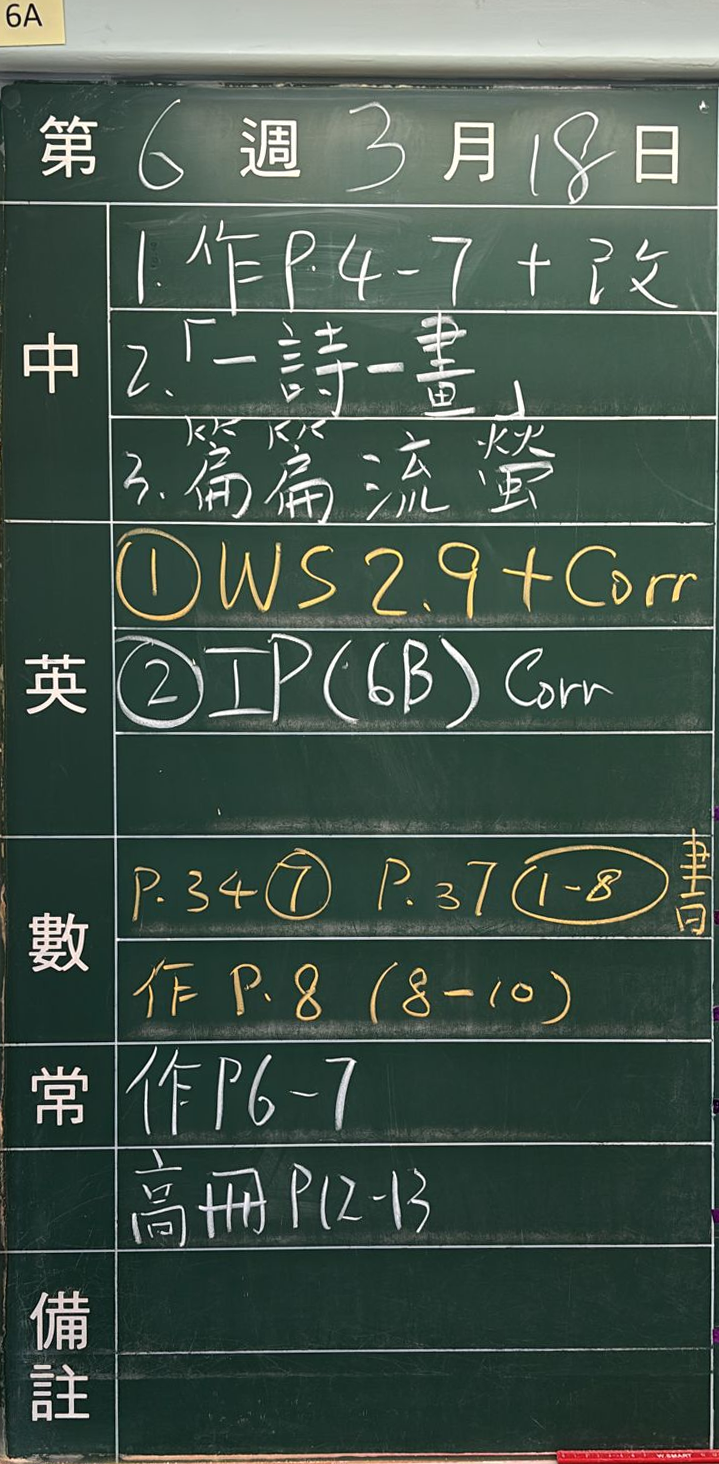 6A
第 6 週 3 月 18 日
中
1. 作P.4-7 + 改
2.「一詩一畫」
3. 篇篇流螢
英
① WS 2.9 + Corr
② IP (6B) Corr
數
P.34 ⑦ P.37 (1-8) 書
作 P.8 (8-10)
常
作P6-7
高冊 P12-13
備註
W.SMART